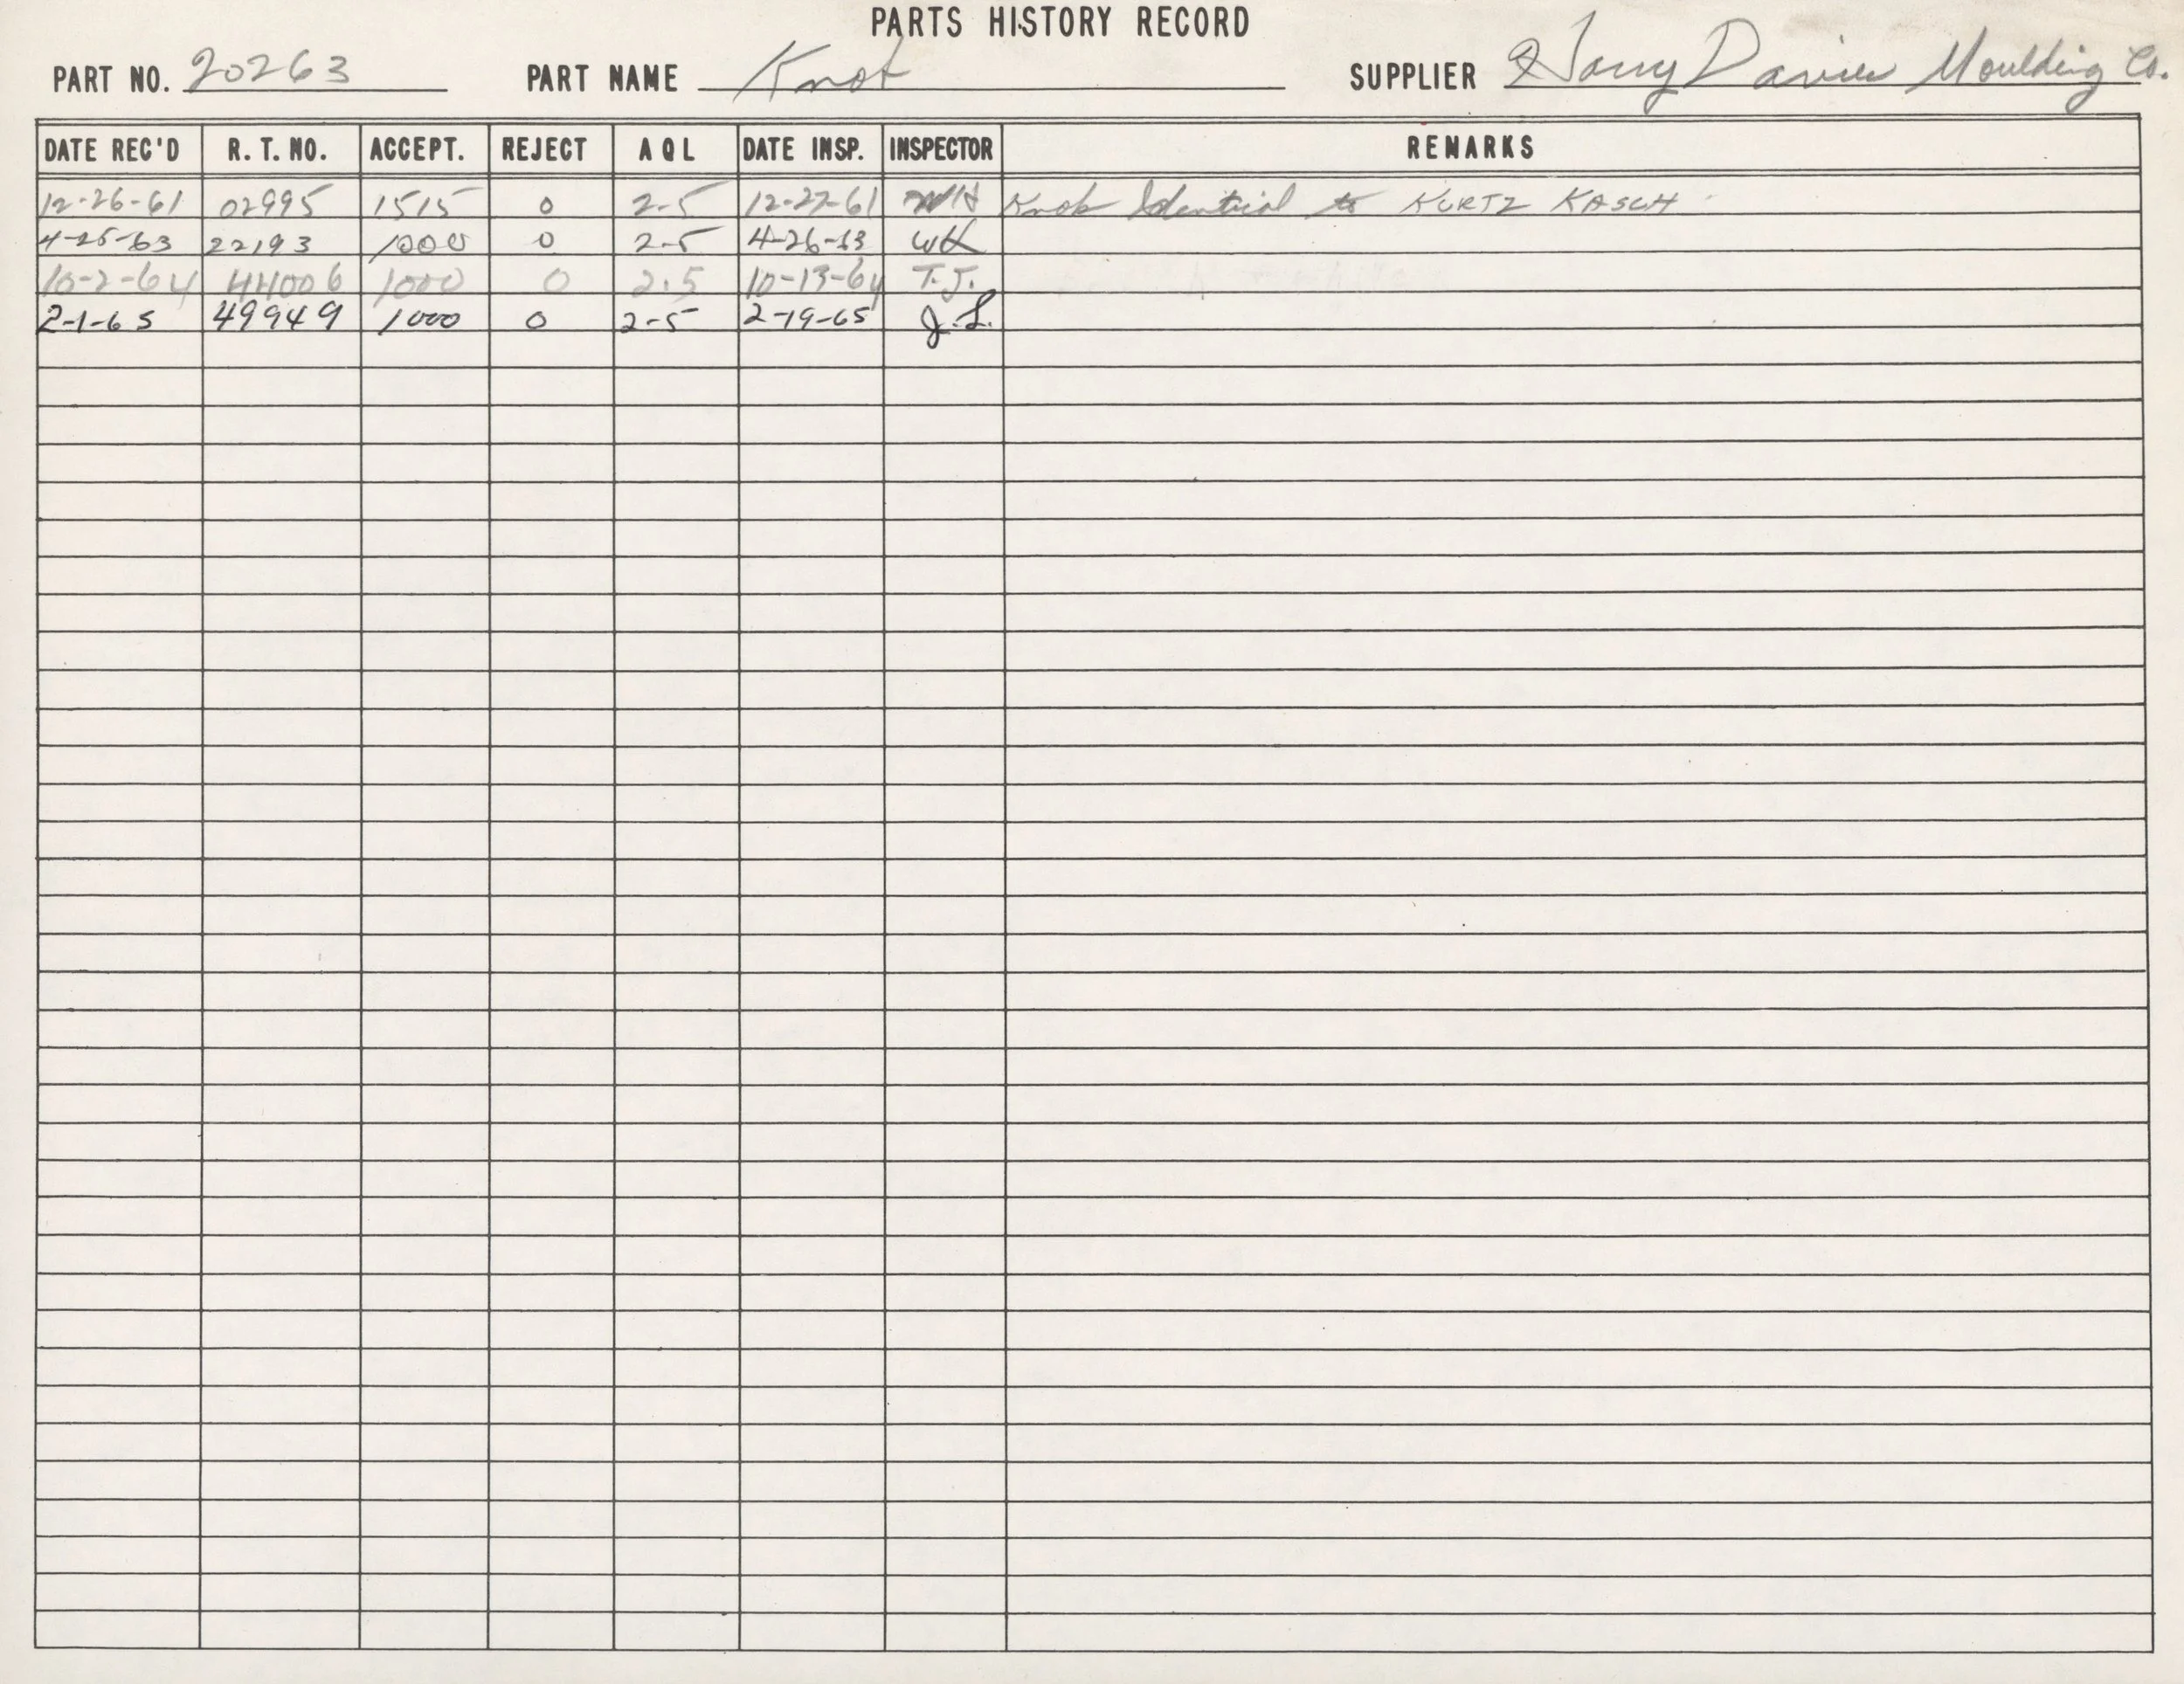 PARTS HISTORY RECORD
PART NO. 20263 PART NAME Knob SUPPLIER Harry Davies Moulding Co.
DATE REC'D R. T. NO. ACCEPT. REJECT A Q L DATE INSP. INSPECTOR REMARKS
12-26-61 02995 1515 0 2-5 12-27-61 Knob Identical to KURTZ KASCH
4-25-63 22193 1000 0 2-5 4-26-63 WK
10-2-64 44006 1000 0 2.5 10-13-64 T.J.
2-1-65 49949 1000 0 2-5 2-19-65 J.L.